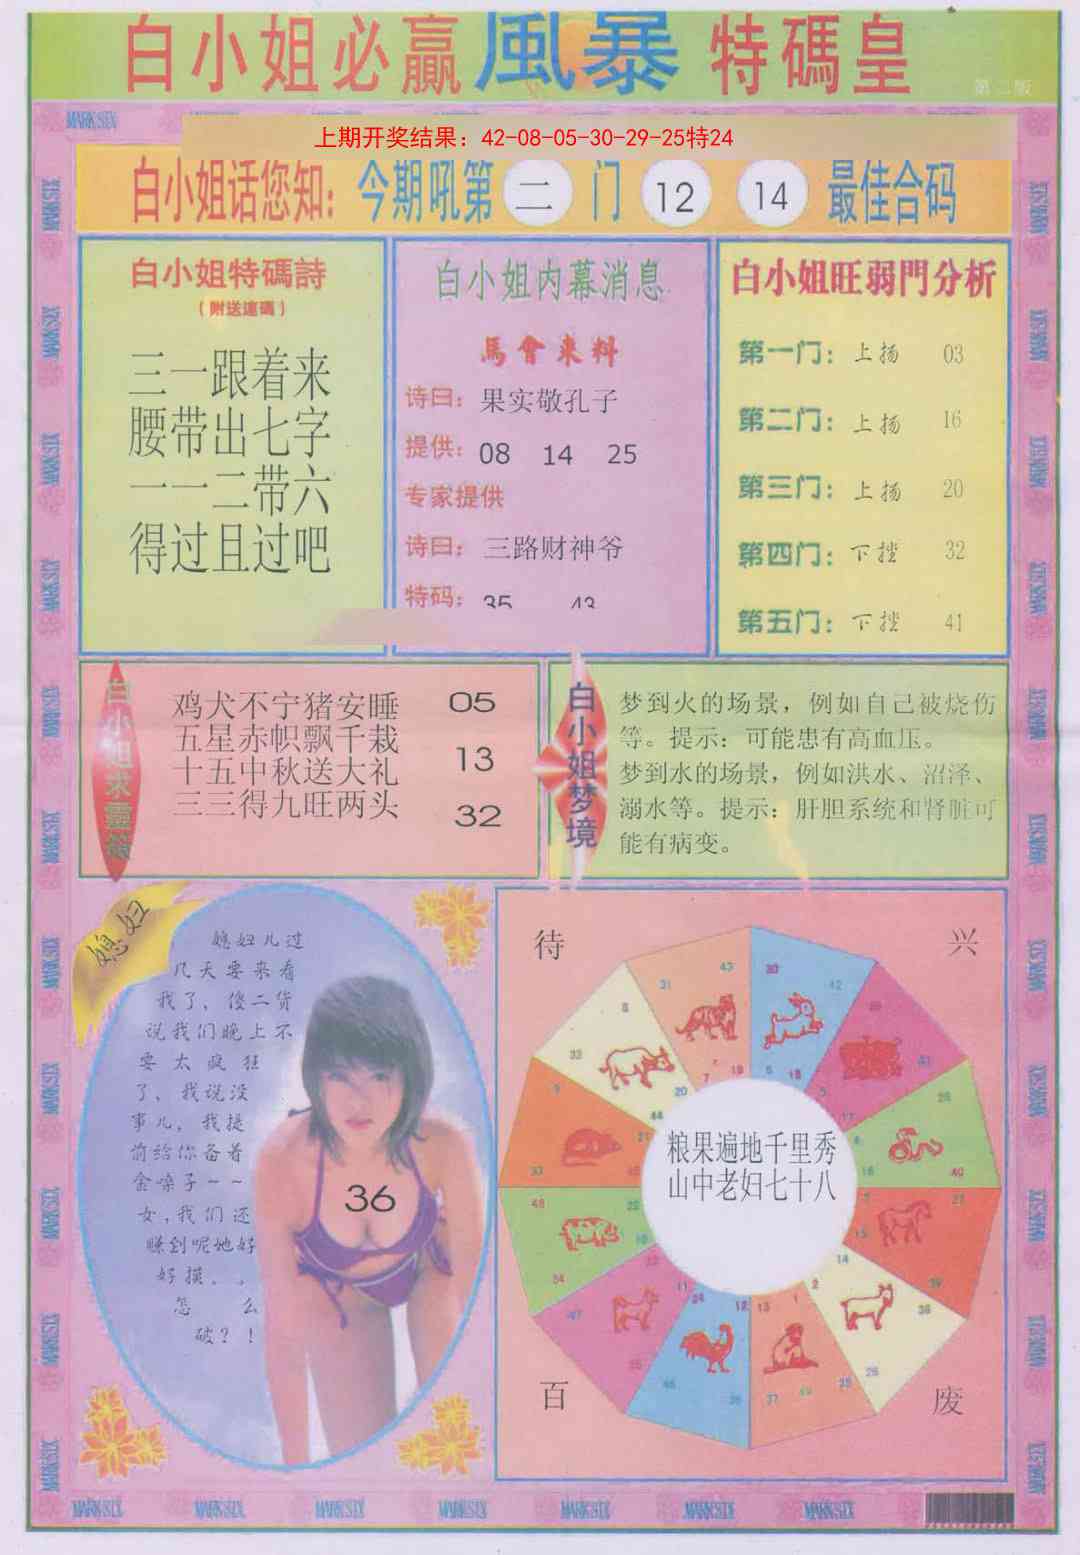 白小姐必赢風暴特碼皇
第二版
MARK SIX
上期开奖结果：42-08-05-30-29-25特24
白小姐话您知：今期吼第 二 门 12 14 最佳合码
白小姐特碼詩
（附送連碼）
三一跟着来
腰带出七字
一一二带六
得过且过吧
白小姐内幕消息
馬會来料
诗曰：果实敬孔子
提供：08 14 25
专家提供
诗曰：三路财神爷
特码：35 43
白小姐旺弱門分析
第一门：上扬 03
第二门：上扬 16
第三门：上扬 20
第四门：下挫 32
第五门：下挫 41
白小姐求靈簽
鸡犬不宁猪安睡 05
五星赤帜飘千栽
十五中秋送大礼 13
三三得九旺两头 32
白小姐梦境
梦到火的场景，例如自己被烧伤
等。提示：可能患有高血压。
梦到水的场景，例如洪水、沼泽、
溺水等。提示：肝胆系统和肾脏可
能有病变。
媳妇
媳妇儿过
几天要来看
我了，傻二货
说我们晚上不
要太疯狂
了、我说没
事儿，我提
前给你备着
金嗓子——
女，我们还
赚到呢她好
好摸。。
怎么
破？！
36
待
兴
粮果遍地千里秀
山中老妇七十八
百
废
MARK SIX MARK SIX MARK SIX MARK SIX MARK SIX MARK SIX MARK SIX